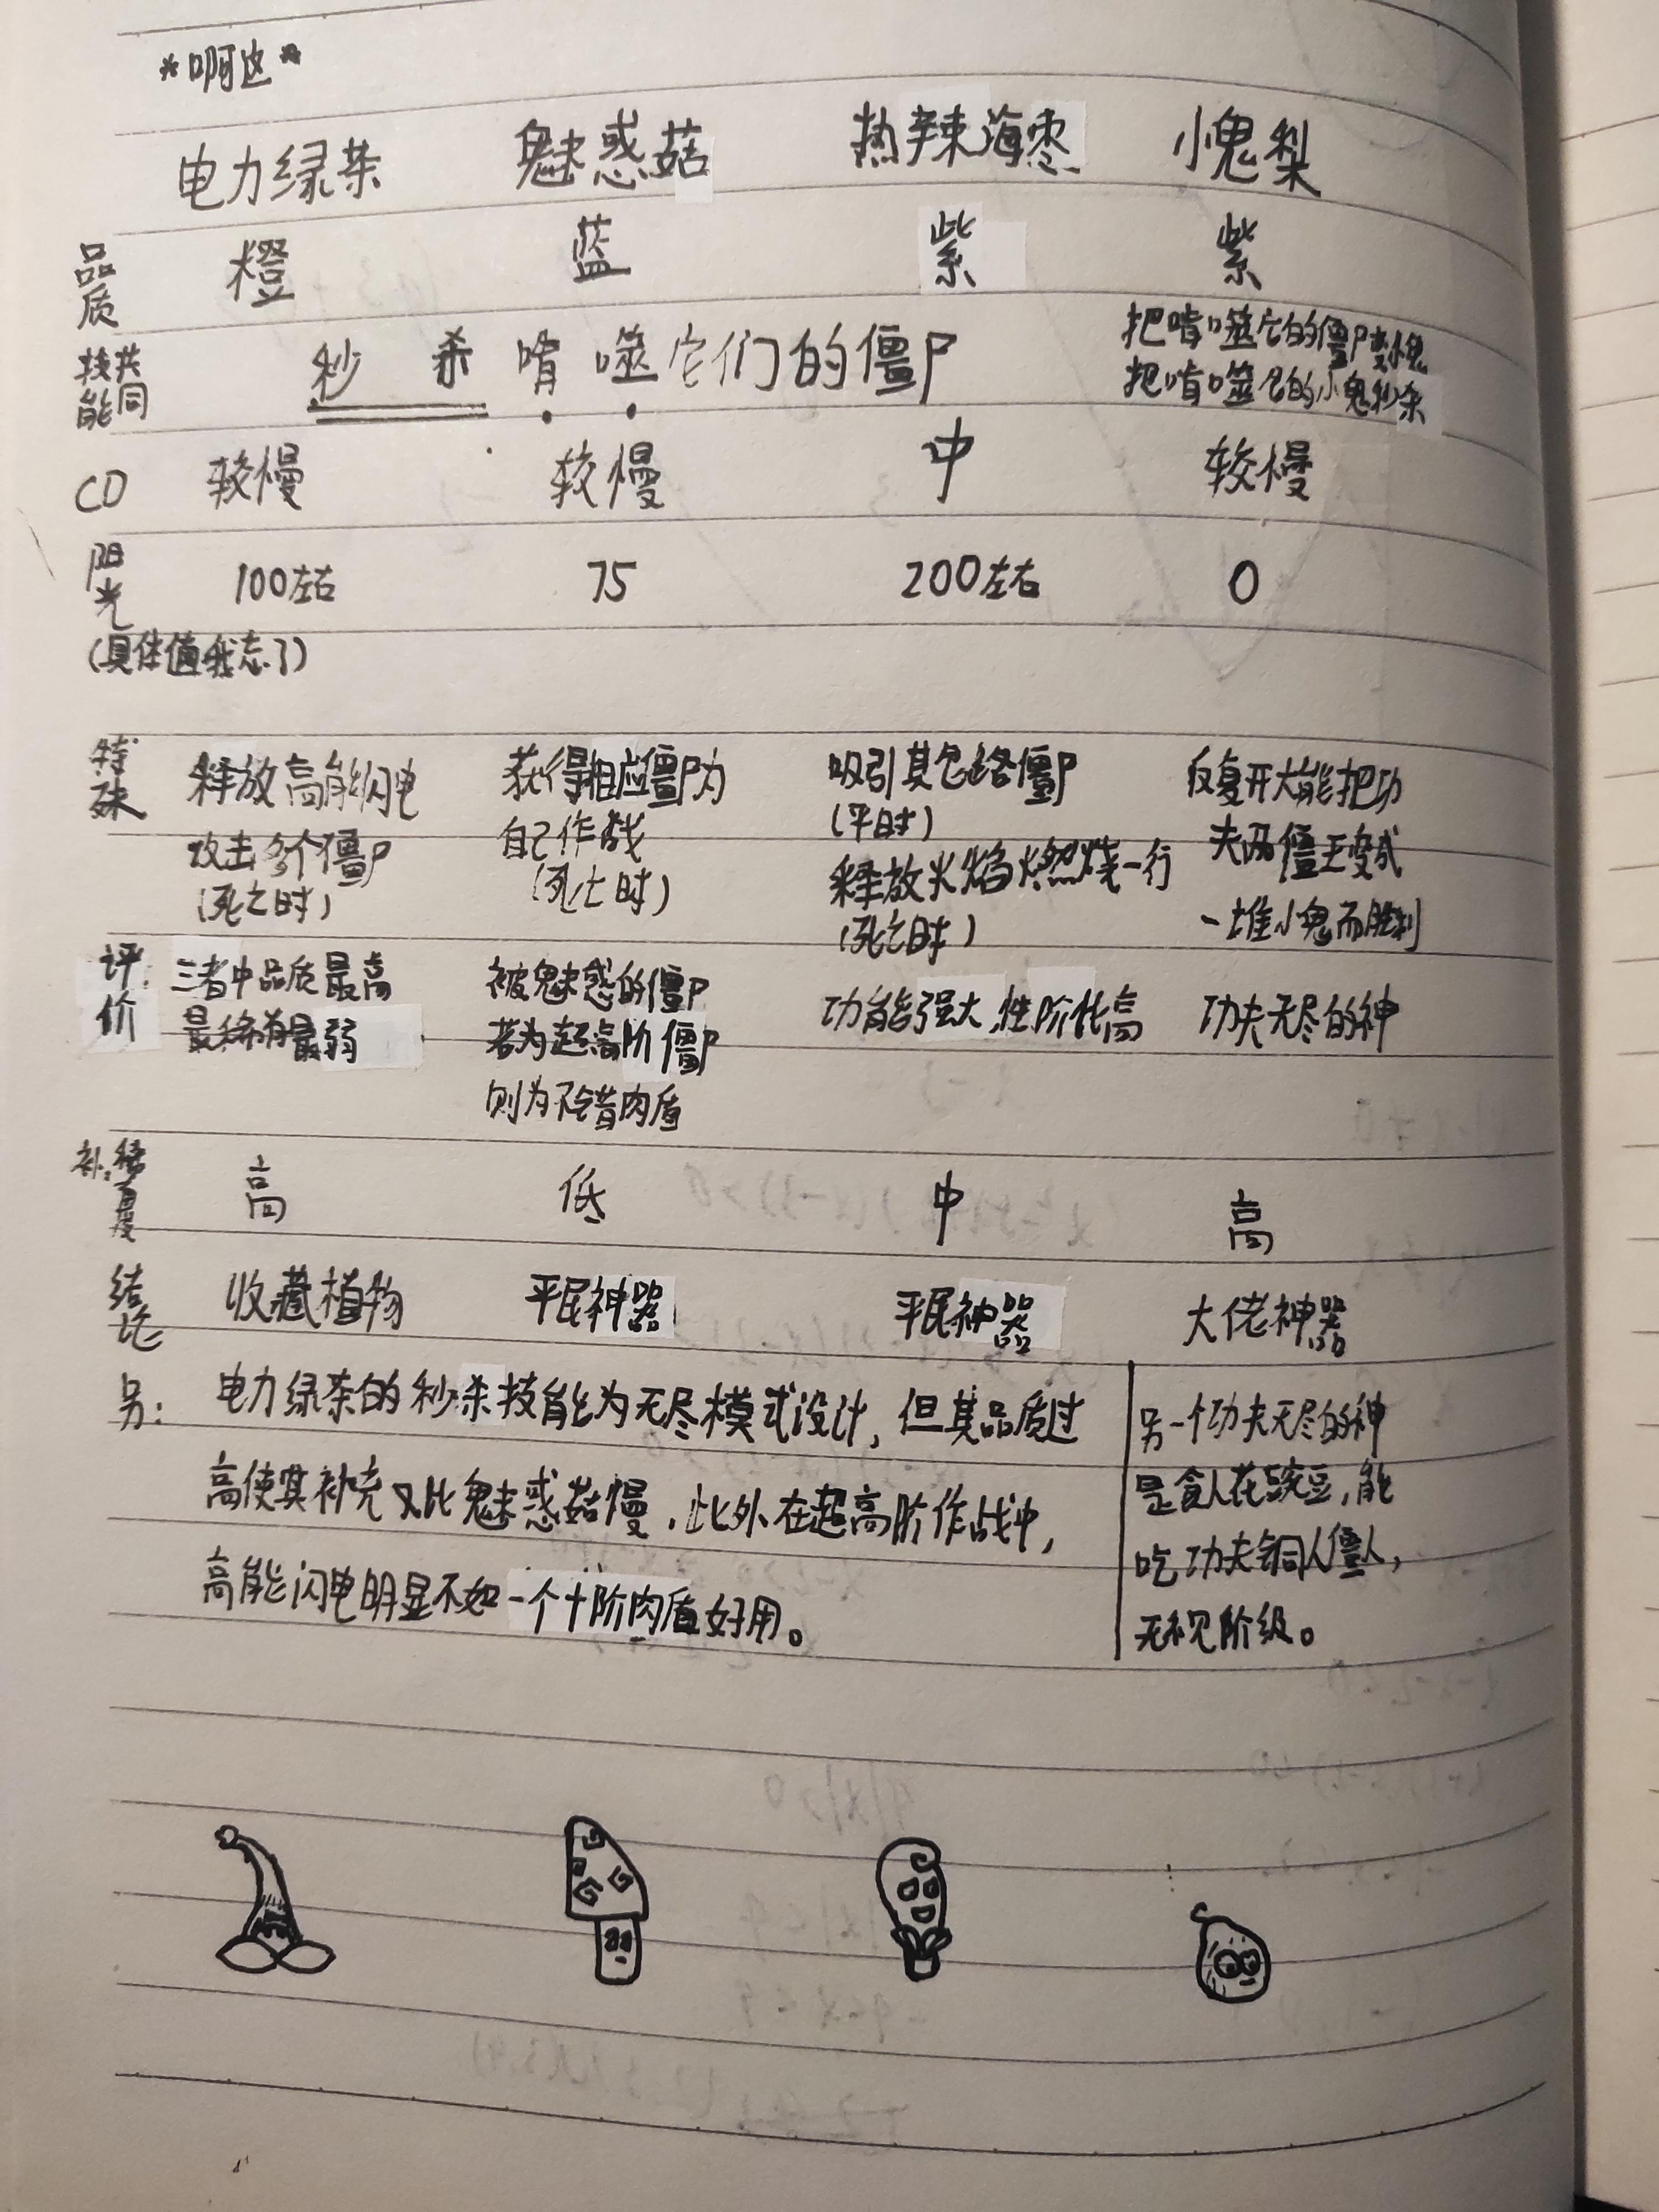 *啊这*
电力绿茶 魅惑菇 热辣海枣 小鬼梨
品质 橙 蓝 紫 紫
共同技能 秒杀啃噬它们的僵尸 把啃噬它的僵尸变小鬼
把啃噬它的小鬼秒杀
CD 较慢 较慢 中 较慢
阳光 100左右 75 200左右 0
(具体值我忘了)
特殊 释放高能闪电 获得相应僵尸为 吸引其它路僵尸 反复开大能把功
攻击多个僵尸 自己作战 (平时) 夫僵王变成
(死亡时) (死亡时) 释放火焰燃烧一行 一堆小鬼而胜利
(死亡时)
评价 三者中品质最高 被魅惑的僵尸 功能强大,性阶比高 功夫无尽的神
最稀有最弱 若为超高阶僵尸
则为不错肉盾
补: 稀有度 高 低 中 高
结论 收藏植物 平民神器 平民神器 大佬神器
另: 电力绿茶的秒杀技能为无尽模式设计,但其品质过
高使其补充又比魅惑菇慢.此外在超高阶作战中,
高能闪电明显不如一个十阶肉盾好用。
另一个功夫无尽的神
是食人花豌豆,能
吃功夫铜人僵人,
无视阶级。